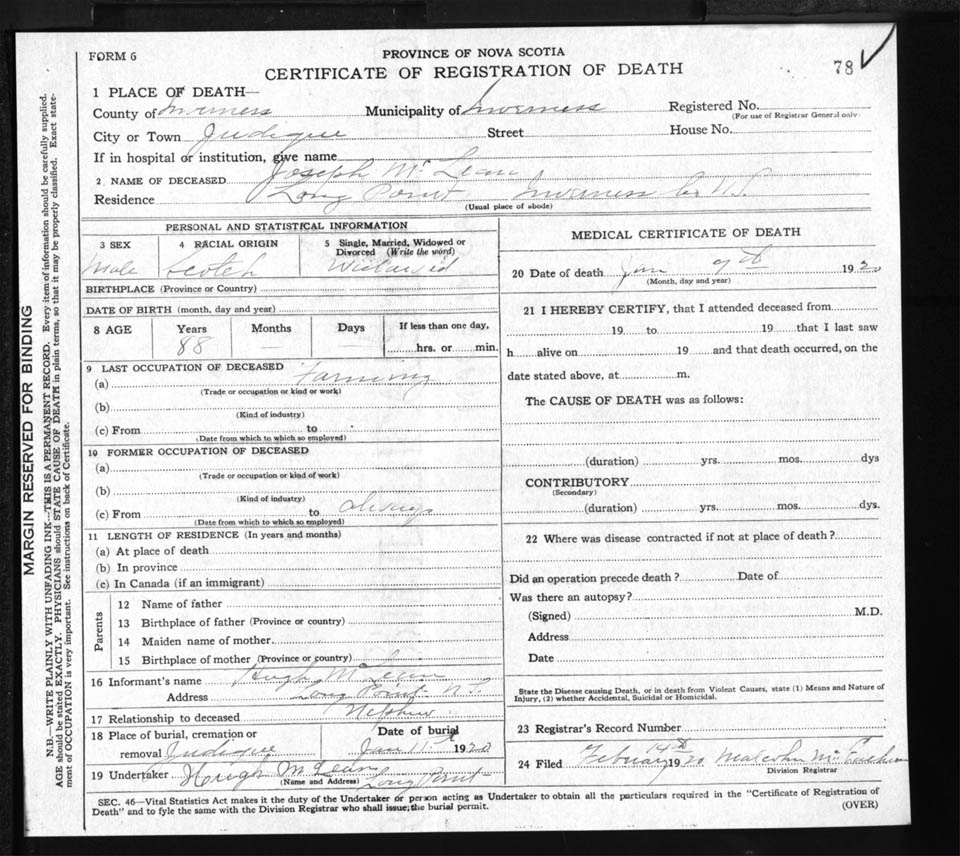 FORM 6
PROVINCE OF NOVA SCOTIA
CERTIFICATE OF REGISTRATION OF DEATH
78
1 PLACE OF DEATH—
County of Inverness Municipality of Inverness Registered No.
(For use of Registrar General only)
City or Town Judique Street House No.
If in hospital or institution, give name
2 NAME OF DECEASED Joseph McLean
Residence Long Point Inverness Co N.S.
(Usual place of abode)
MARGIN RESERVED FOR BINDING
N.B.—WRITE PLAINLY WITH UNFADING INK—THIS IS A PERMANENT RECORD. Every item of information should be carefully supplied.
AGE should be stated EXACTLY. PHYSICIANS should STATE CAUSE OF DEATH in plain terms, so that it may be properly classified. Exact state-
ment of OCCUPATION is very important. See instructions on back of Certificate.
PERSONAL AND STATISTICAL INFORMATION
3 SEX 4 RACIAL ORIGIN 5 Single, Married, Widowed or
Divorced (Write the word)
Male Scotch Widowed
BIRTHPLACE (Province or Country)
DATE OF BIRTH (month, day and year)
8 AGE Years Months Days If less than one day,
88 — — hrs. or min.
9 LAST OCCUPATION OF DECEASED
(a) Farming
(Trade or occupation or kind or work)
(b)
(Kind of industry)
(c) From to
(Date from which to which so employed)
10 FORMER OCCUPATION OF DECEASED
(a)
(Trade or occupation or kind of work)
(b)
(Kind of industry)
(c) From to always
(Date from which to which so employed)
11 LENGTH OF RESIDENCE (In years and months)
(a) At place of death
(b) In province
(c) In Canada (if an immigrant)
Parents
12 Name of father
13 Birthplace of father (Province or country)
14 Maiden name of mother
15 Birthplace of mother (Province or country)
16 Informant's name Hugh McLean
Address Long Point N.S.
17 Relationship to deceased Nephew
18 Place of burial, cremation or Date of burial
removal Judique Jan 11th 1920
19 Undertaker Hugh McLean Long Point
(Name and Address)
MEDICAL CERTIFICATE OF DEATH
20 Date of death Jan 9th 1920
(Month, day and year)
21 I HEREBY CERTIFY, that I attended deceased from
19 to 19 that I last saw
h alive on 19 and that death occurred, on the
date stated above, at m.
The CAUSE OF DEATH was as follows:
(duration) yrs. mos. dys
CONTRIBUTORY
(Secondary)
(duration) yrs. mos. dys.
22 Where was disease contracted if not at place of death?
Did an operation precede death? Date of
Was there an autopsy?
(Signed) M.D.
Address
Date
State the Disease causing Death, or in death from Violent Causes, state (1) Means and Nature of
Injury, (2) whether Accidental, Suicidal or Homicidal.
23 Registrar's Record Number
24 Filed February 14th 1920 Malcolm
Division Registrar
SEC. 46—Vital Statistics Act makes it the duty of the Undertaker or person acting as Undertaker to obtain all the particulars required in the "Certificate of Registration of
Death" and to fyle the same with the Division Registrar who shall issue the burial permit.
(OVER)